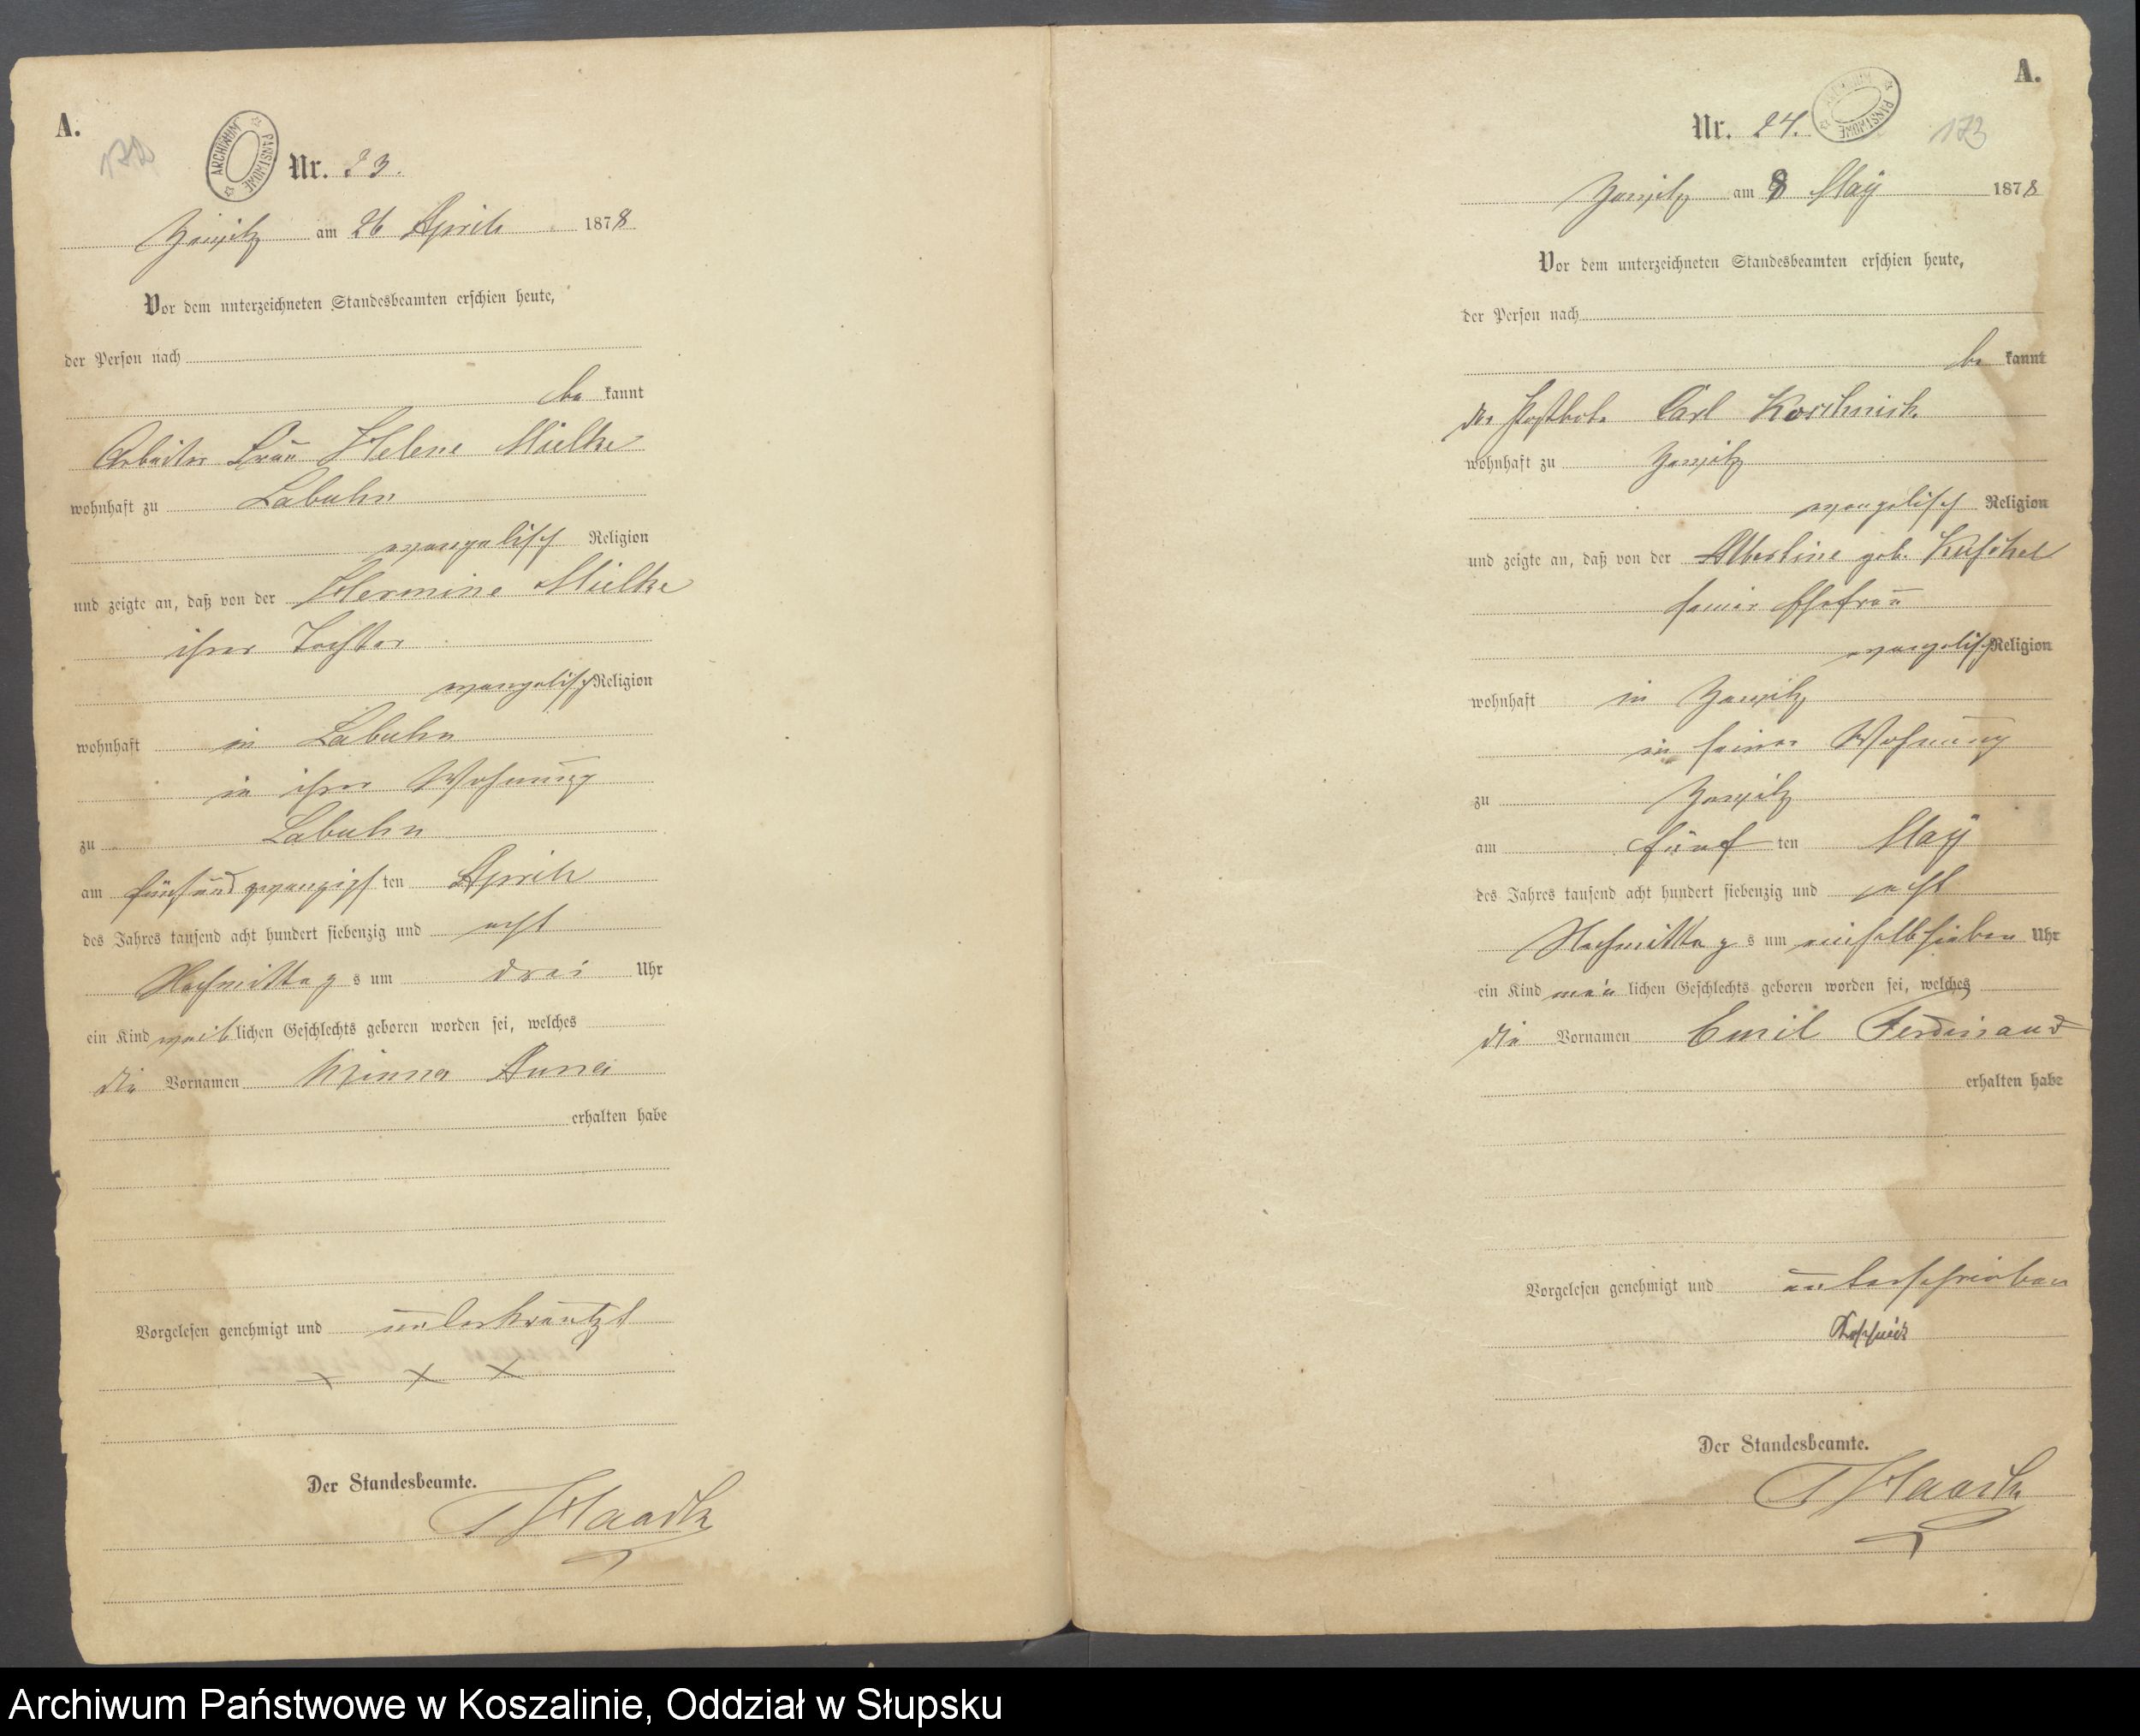 A.
172
ARCHIWUM PAŃSTWOWE
Nr. 23.
Zewitz am 26 April 1878
Vor dem unterzeichneten Standesbeamten erschien heute,
der Person nach
be kannt
Arbeiter Frau Helene Mielke
wohnhaft zu Labuhn
evangelisch Religion
und zeigte an, daß von der Hermine Mielke
ihrer Tochter
evangelisch Religion
wohnhaft in Labuhn
in ihrer Wohnung
zu Labuhn
am fünfundzwanzigsten April
des Jahres tausend acht hundert siebenzig und acht
Nachmittag s um drei Uhr
ein Kind weiblichen Geschlechts geboren worden sei, welches
die Vornamen Minna Anna
erhalten habe
Vorgelesen genehmigt und unterkreutzt
x x x
Der Standesbeamte.
A.
Nr. 24.
ARCHIWUM PAŃSTWOWE
173
Zewitz am 8 May 1878
Vor dem unterzeichneten Standesbeamten erschien heute,
der Person nach
be kannt
der Postbote Carl
wohnhaft zu Zewitz
evangelisch Religion
und zeigte an, daß von der Albertine geb.
seiner Ehefrau
evangelisch Religion
wohnhaft in Zewitz
in seiner Wohnung
zu Zewitz
am fünf ten May
des Jahres tausend acht hundert siebenzig und acht
Nachmittag s um einhalbsieben Uhr
ein Kind män lichen Geschlechts geboren worden sei, welches
die Vornamen Emil Ferdinand
erhalten habe
Vorgelesen genehmigt und unterschrieben
Der Standesbeamte.
Archiwum Państwowe w Koszalinie, Oddział w Słupsku